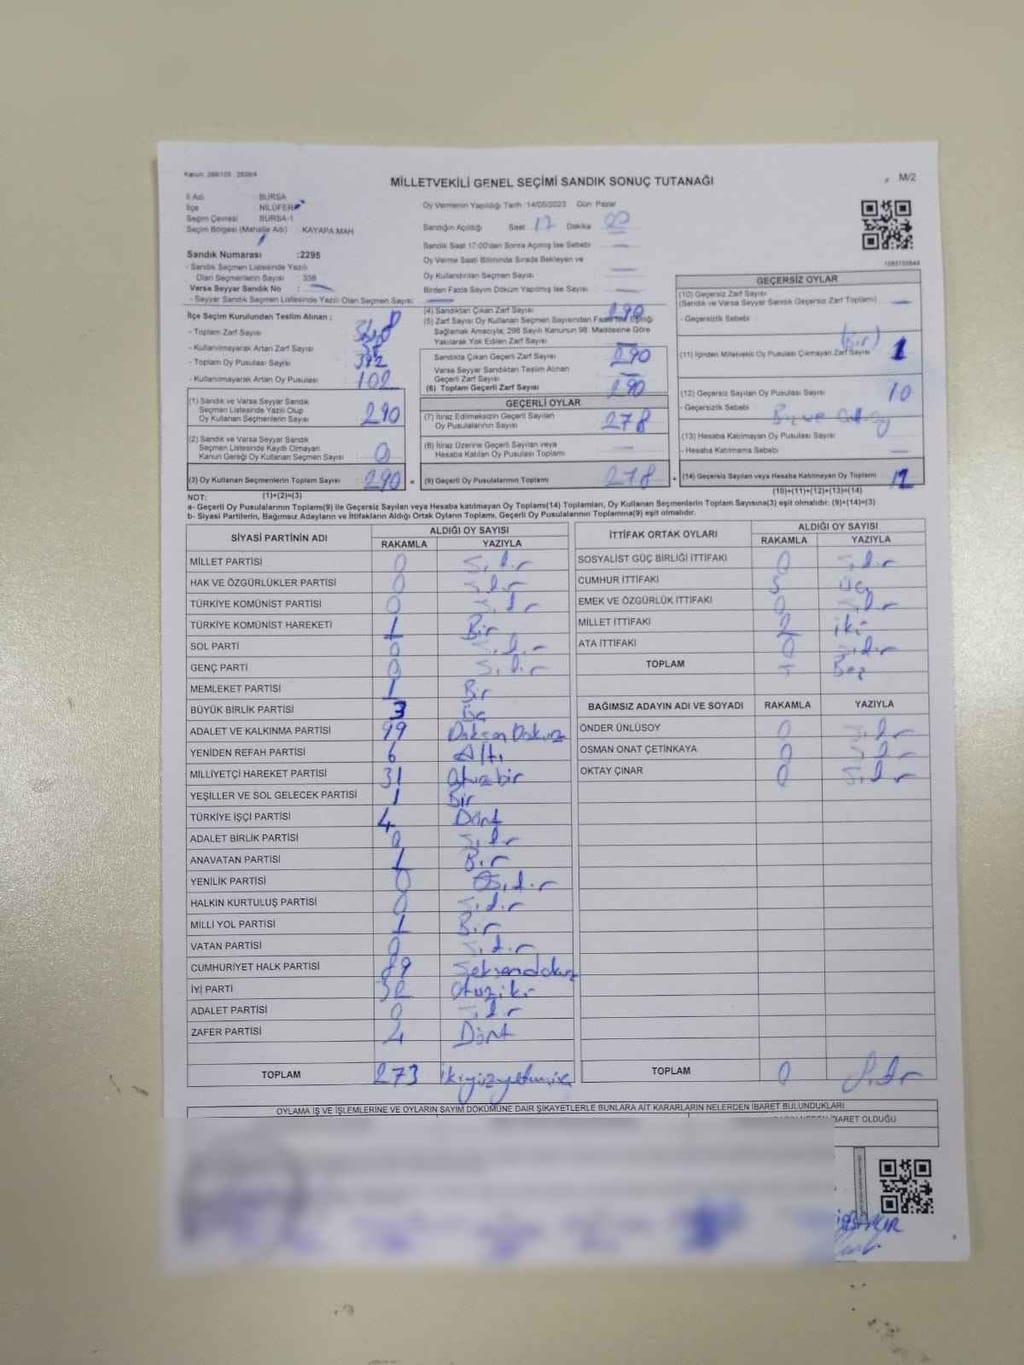 MİLLETVEKİLİ GENEL SEÇİMİ SANDIK SONUÇ TUTANAĞI
M/2
İl Adı BURSA
İlçe NİLÜFER
Seçim Çevresi BURSA-1
Seçim Bölgesi (Mahalle Adı) KAYAPA MAH
Sandık Numarası :2295
- Sandık Seçmen Listesinde Yazılı
Olan Seçmenlerin Sayısı 338
Varsa Seyyar Sandık No :
- Seyyar Sandık Seçmen Listesinde Yazılı Olan Seçmen Sayısı
İlçe Seçim Kurulundan Teslim Alınan :
- Toplam Zarf Sayısı
- Kullanılmayarak Artan Zarf Sayısı
- Toplam Oy Pusulası Sayısı
- Kullanılmayarak Artan Oy Pusulası 102
(1) Sandık ve Varsa Seyyar Sandık
Seçmen Listesinde Yazılı Olup
Oy Kullanan Seçmenlerin Sayısı 290
(2) Sandık ve Varsa Seyyar Sandık
Seçmen Listesinde Kayıtlı Olmayan
Kanun Gereği Oy Kullanan Seçmen Sayısı 0
(3) Oy Kullanan Seçmenlerin Toplam Sayısı 290
(1)+(2)=(3)
Oy Vermenin Yapıldığı Tarih :14/05/2023 Gün Pazar
Sandığın Açıldığı Saat 17 Dakika
Sandık Saat 17:00'den Sonra Açılmış İse Sebebi
Oy Verme Saati Bitiminde Sırada Bekleyen ve
Oy Kullandırılan Seçmen Sayısı
Birden Fazla Sayım Döküm Yapılmış İse Sayısı
(4) Sandıktan Çıkan Zarf Sayısı 290
(5) Zarf Sayısı Oy Kullanan Seçmen Sayısından Fazla İse Eşitliği
Sağlamak Amacıyla; 298 Sayılı Kanunun 98. Maddesine Göre
Yakılarak Yok Edilen Zarf Sayısı
Sandıkta Çıkan Geçerli Zarf Sayısı 290
Varsa Seyyar Sandıktan Teslim Alınan
Geçerli Zarf Sayısı
(6) Toplam Geçerli Zarf Sayısı 290
GEÇERLİ OYLAR
(7) İtiraz Edilmeksizin Geçerli Sayılan
Oy Pusulalarının Sayısı 278
(8) İtiraz Üzerine Geçerli Sayılan veya
Hesaba Katılan Oy Pusulası Toplamı
(9) Geçerli Oy Pusulalarının Toplamı 278
GEÇERSİZ OYLAR
(10) Geçersiz Zarf Sayısı
(Sandık ve Varsa Seyyar Sandık Geçersiz Zarf Toplamı)
- Geçersizlik Sebebi
(11) İçinden Milletvekili Oy Pusulası Çıkmayan Zarf Sayısı (Bir) 1
(12) Geçersiz Sayılan Oy Pusulası Sayısı 10
- Geçersizlik Sebebi
(13) Hesaba Katılmayan Oy Pusulası Sayısı
- Hesaba Katılmama Sebebi
(14) Geçersiz Sayılan veya Hesaba Katılmayan Oy Toplamı
(10)+(11)+(12)+(13)=(14)
NOT:
a- Geçerli Oy Pusulalarının Toplamı(9) ile Geçersiz Sayılan veya Hesaba katılmayan Oy Toplamı(14) Toplamları, Oy Kullanan Seçmenlerin Toplam Sayısına(3) eşit olmalıdır. (9)+(14)=(3)
b- Siyasi Partilerin, Bağımsız Adayların ve İttifakların Aldığı Ortak Oyların Toplamı, Geçerli Oy Pusulalarının Toplamına(9) eşit olmalıdır.
SİYASİ PARTİNİN ADI ALDIĞI OY SAYISI
RAKAMLA YAZIYLA
MİLLET PARTİSİ 0 Sıfır
HAK VE ÖZGÜRLÜKLER PARTİSİ 0 Sıfır
TÜRKİYE KOMÜNİST PARTİSİ 0 Sıfır
TÜRKİYE KOMÜNİST HAREKETİ 1 Bir
SOL PARTİ 0 Sıfır
GENÇ PARTİ 0 Sıfır
MEMLEKET PARTİSİ 1 Bir
BÜYÜK BİRLİK PARTİSİ 3 Üç
ADALET VE KALKINMA PARTİSİ 99 Doksan Dokuz
YENİDEN REFAH PARTİSİ 6 Altı
MİLLİYETÇİ HAREKET PARTİSİ 31 Otuzbir
YEŞİLLER VE SOL GELECEK PARTİSİ 1 Bir
TÜRKİYE İŞÇİ PARTİSİ 4 Dört
ADALET BİRLİK PARTİSİ 0 Sıfır
ANAVATAN PARTİSİ 1 Bir
YENİLİK PARTİSİ 0 Sıfır
HALKIN KURTULUŞ PARTİSİ 0 Sıfır
MİLLİ YOL PARTİSİ 1 Bir
VATAN PARTİSİ 0 Sıfır
CUMHURİYET HALK PARTİSİ 89 Seksendokuz
İYİ PARTİ 32 Otuziki
ADALET PARTİSİ 0 Sıfır
ZAFER PARTİSİ 4 Dört
TOPLAM 273 ikiyüzyetmiş
İTTİFAK ORTAK OYLARI ALDIĞI OY SAYISI
RAKAMLA YAZIYLA
SOSYALİST GÜÇ BİRLİĞİ İTTİFAKI 0 Sıfır
CUMHUR İTTİFAKI Üç
EMEK VE ÖZGÜRLÜK İTTİFAKI 0 Sıfır
MİLLET İTTİFAKI 2 iki
ATA İTTİFAKI 0 Sıfır
TOPLAM 5 Beş
BAĞIMSIZ ADAYIN ADI VE SOYADI RAKAMLA YAZIYLA
ÖNDER ÜNLÜSOY 0 Sıfır
OSMAN ONAT ÇETİNKAYA 0 Sıfır
OKTAY ÇINAR 0 Sıfır
TOPLAM 0 Sıfır
OYLAMA İŞ VE İŞLEMLERİNE VE OYLARIN SAYIM DÖKÜMÜNE DAİR ŞİKAYETLERLE BUNLARA AİT KARARLARIN NELERDEN İBARET BULUNDUKLARI
İBARET OLDUĞU